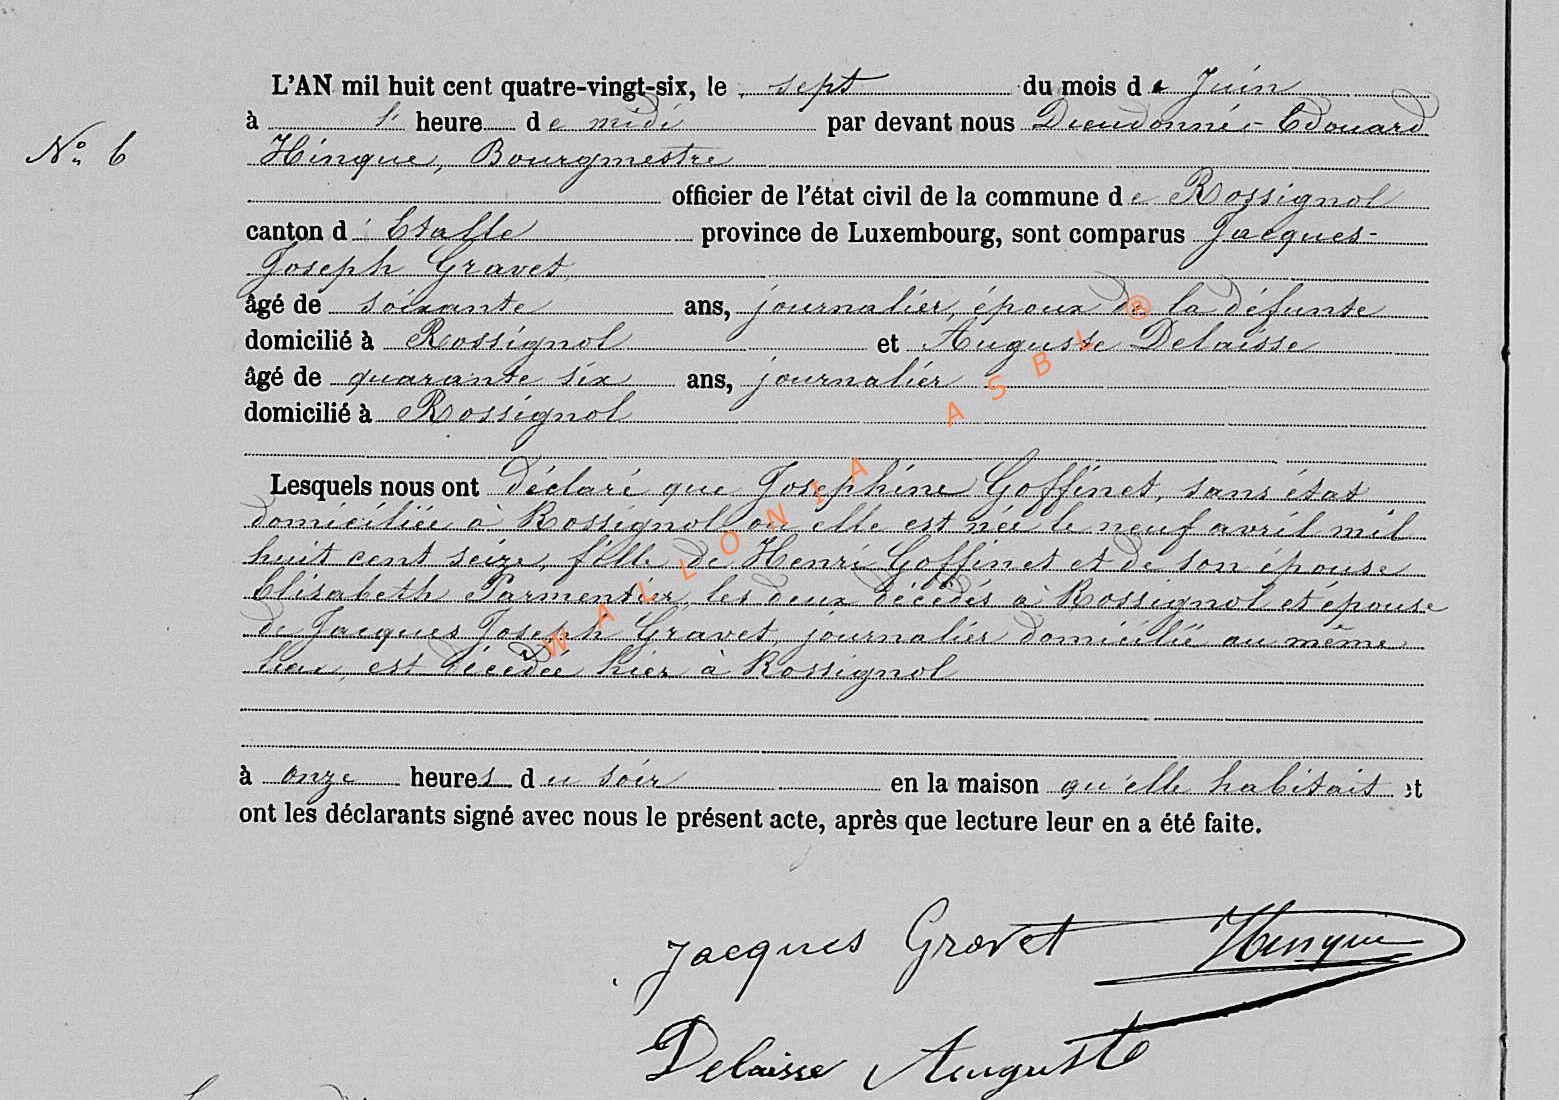 L'AN mil huit cent quatre-vingt-six, le sept du mois de Juin
à heure de midi par devant nous Dieudonné-Edouard
N° 6
Hinque, Bourgmestre
officier de l'état civil de la commune de Rossignol
canton d'Etalle province de Luxembourg, sont comparus Jacques-
Joseph Gravet,
âgé de soixante ans, journalier, époux de la défunte
domicilié à Rossignol et Auguste Delaisse
âgé de quarante six ans, journalier
domicilié à Rossignol
Lesquels nous ont déclaré que Joséphine Goffinet, sans état
domiciliée à Rossignol où elle est née le neuf avril mil
huit cent seize, fille de Henri Goffinet et de son épouse
Elisabeth Parmentier, les deux décédés à Rossignol et épouse
de Jacques Joseph Gravet, journalier domicilié au même
lieu, est décédée hier à Rossignol
à onze heures du soir en la maison qu'elle habitait et
ont les déclarants signé avec nous le présent acte, après que lecture leur en a été faite.
Jacques Gravet Hinque
Delaisse Auguste
WALLONIA ASBL ®